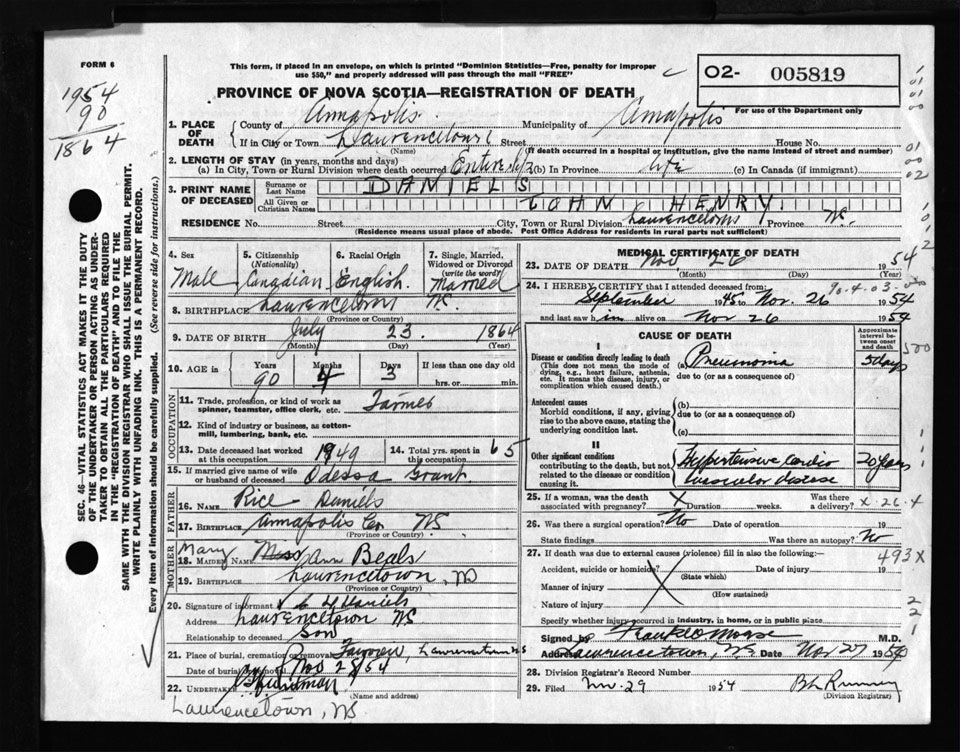 FORM 6
This form, if placed in an envelope, on which is printed "Dominion Statistics—Free, penalty for improper
use $50," and properly addressed will pass through the mail "FREE"
02- 005819
PROVINCE OF NOVA SCOTIA—REGISTRATION OF DEATH
For use of the Department only
1954
90
1864
1. PLACE OF DEATH
County of Annapolis Municipality of Annapolis
If in City or Town Lawrencetown Street House No.
(Name) (If death occurred in a hospital or institution, give the name instead of street and number)
2. LENGTH OF STAY (in years, months and days)
(a) In City, Town or Rural Division where death occurred Entire life (b) In Province life (c) In Canada (if immigrant)
3. PRINT NAME OF DECEASED
Surname or Last Name DANIELS
All Given or Christian Names JOHN HENRY.
RESIDENCE No. Street City, Town or Rural Division Lawrencetown Province N.S.
(Residence means usual place of abode. Post Office Address for residents in rural parts not sufficient)
SEC. 46 VITAL STATISTICS ACT MAKES IT THE DUTY
OF THE UNDERTAKER OR PERSON ACTING AS UNDER-
TAKER TO OBTAIN ALL THE PARTICULARS REQUIRED
IN THE "REGISTRATION OF DEATH" AND TO FILE THE
SAME WITH THE DIVISION REGISTRAR WHO SHALL ISSUE THE BURIAL PERMIT.
WRITE PLAINLY WITH UNFADING INK. THIS IS A PERMANENT RECORD.
Every item of information should be carefully supplied. (See reverse side for instructions.)
4. Sex
Male
5. Citizenship (Nationality)
Canadian
6. Racial Origin
English.
7. Single, Married, Widowed or Divorced (write the word)
Married
8. BIRTHPLACE Lawrencetown N.S.
(Province or Country)
9. DATE OF BIRTH July 23 1864
(Month) (Day) (Year)
10. AGE in Years 90 Months 4 Days 3 If less than one day old
hrs. or min.
OCCUPATION
11. Trade, profession, or kind of work as
spinner, teamster, office clerk, etc. Farmer
12. Kind of industry or business, as cotton-
mill, lumbering, bank, etc.
13. Date deceased last worked at this occupation 1949
14. Total yrs. spent in this occupation 65
15. If married give name of wife
or husband of deceased Odessa Grant
FATHER
16. Name Rice Daniels
17. BIRTHPLACE Annapolis Co. NS
(Province or Country)
MOTHER
18. MAIDEN NAME Mary Ann Beals
19. BIRTHPLACE Lawrencetown, NS
(Province or Country)
20. Signature of informant Daniels
Address Lawrencetown NS
Relationship to deceased Son
21. Place of burial, cremation or removal Lawrencetown NS
Date of burial or removal Nov 28 54
22. UNDERTAKER
(Name and address)
Lawrencetown, NS
MEDICAL CERTIFICATE OF DEATH
23. DATE OF DEATH Nov 26 1954
(Month) (Day) (Year)
24. I HEREBY CERTIFY that I attended deceased from: 90.4.03
September 1945 to Nov. 26 1954
and last saw him alive on Nov 26 1954
CAUSE OF DEATH
Approximate interval between onset and death
I
Disease or condition directly leading to death
(This does not mean the mode of
dying, e.g., heart failure, asthenia,
etc. It means the disease, injury, or
complication which caused death.)
(a) Pneumonia 5 days
due to (or as a consequence of)
Antecedent causes
Morbid conditions, if any, giving
rise to the above cause, stating the
underlying condition last.
(b)
due to (or as a consequence of)
(c)
II
Other significant conditions
contributing to the death, but not
related to the disease or condition
causing it.
Hypertensive Cardio
vascular disease
20 years
25. If a woman, was the death
associated with pregnancy? X Duration weeks. Was there a delivery?
26. Was there a surgical operation? No Date of operation 19
State findings Was there an autopsy? No
493X
27. If death was due to external causes (violence) fill in also the following:—
Accident, suicide or homicide? Date of injury 19
(State which)
Manner of injury
(How sustained)
Nature of injury
Specify whether injury occurred in industry, in home, or in public place
Signed by Frank Morse M.D.
Address Lawrencetown, N.S. Date Nov 27 1954
28. Division Registrar's Record Number
29. Filed Nov. 29 1954
(Division Registrar)